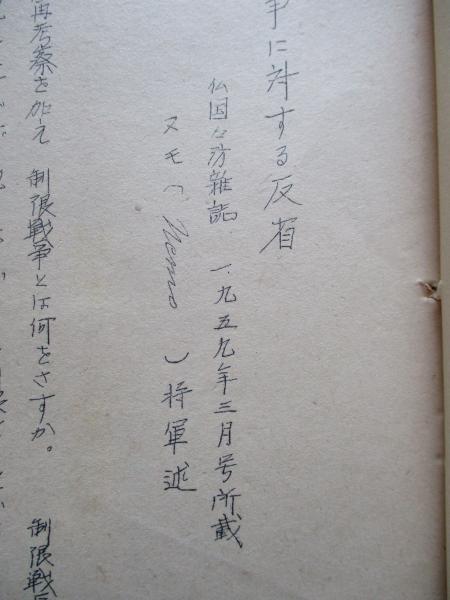 争に対する反省
仏国々防雑誌 一九五九年三月号所載
ヌモ( Nemo )将軍述
再考察を加え 制限戦争とは何をさすか。 制限戦